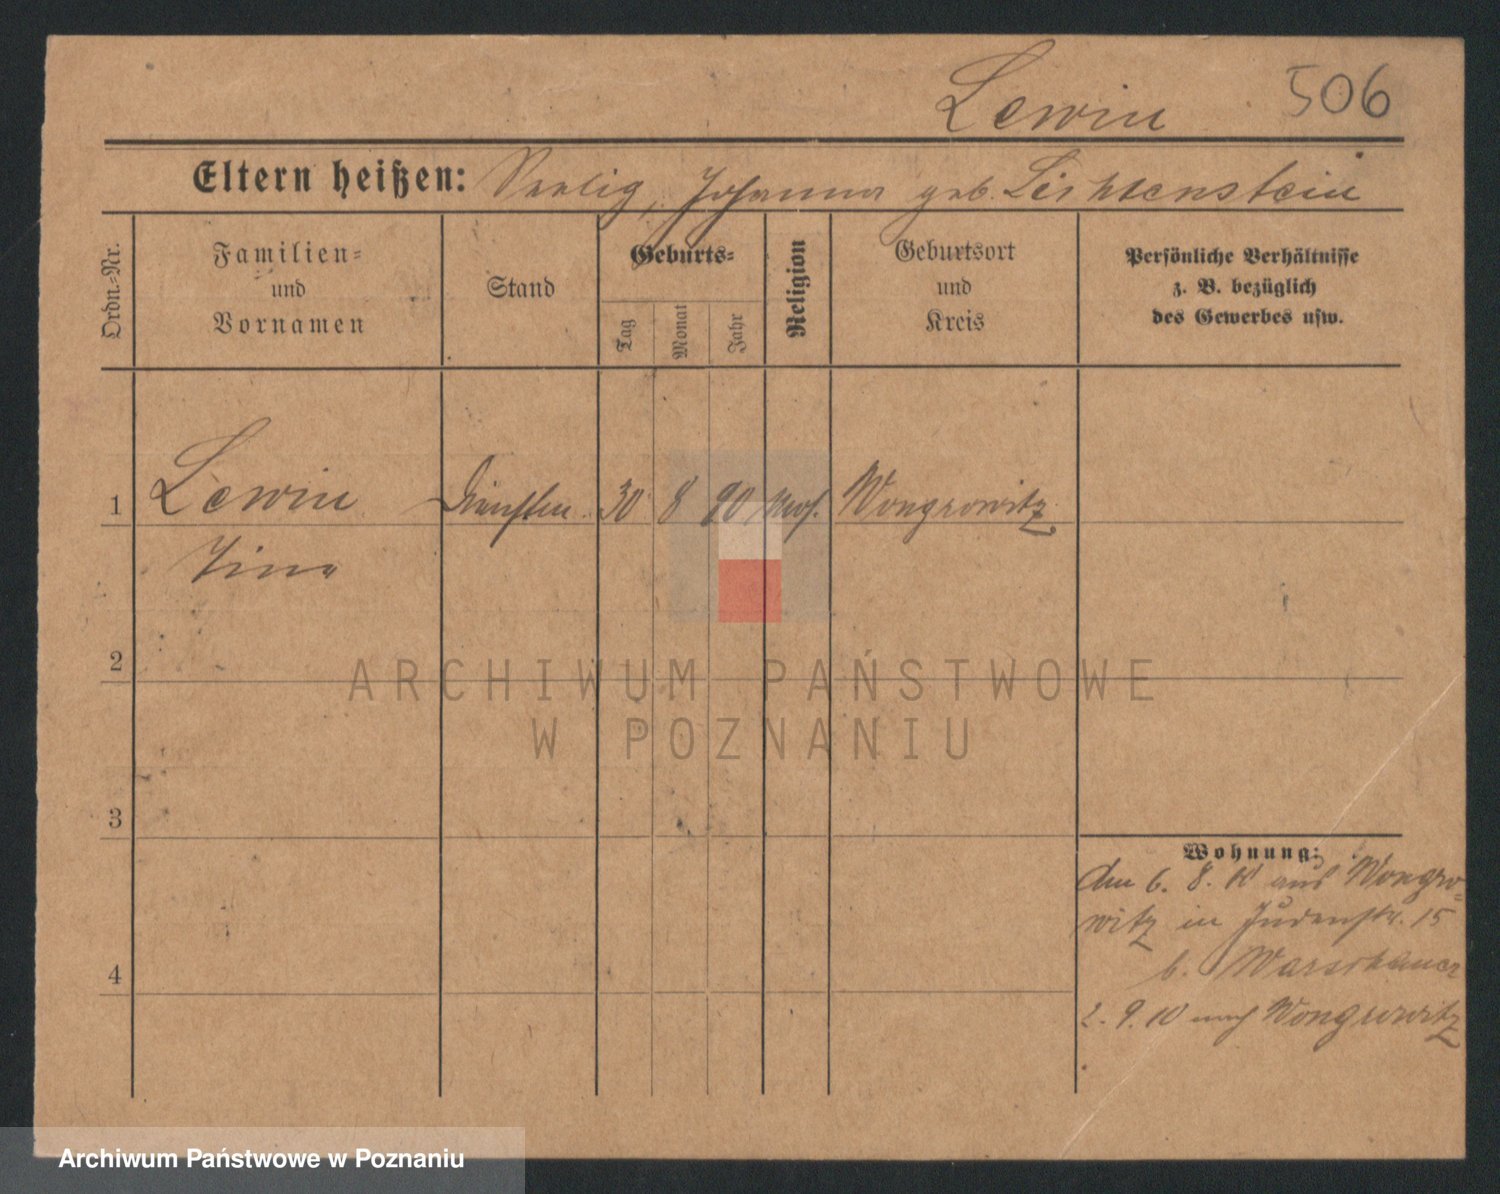 Lewin 506
Eltern heißen: Seelig, Johanna geb. Lichtenstein
Ordn.-Nr.
Familien-
und
Vornamen
Stand
Geburts-
Tag
Monat
Jahr
Religion
Geburtsort
und
Kreis
Persönliche Verhältnisse
z. B. bezüglich
des Gewerbes usw.
1 Lewin 30 8 90 mos. Wongrowitz
2
3
4
Wohnung:
Am 6. 8. 10 aus Wongro-
witz in Judenstr. 15
b. Warschauer
2. 9. 10 nach Wongrowitz
ARCHIWUM PAŃSTWOWE
W POZNANIU
Archiwum Państwowe w Poznaniu